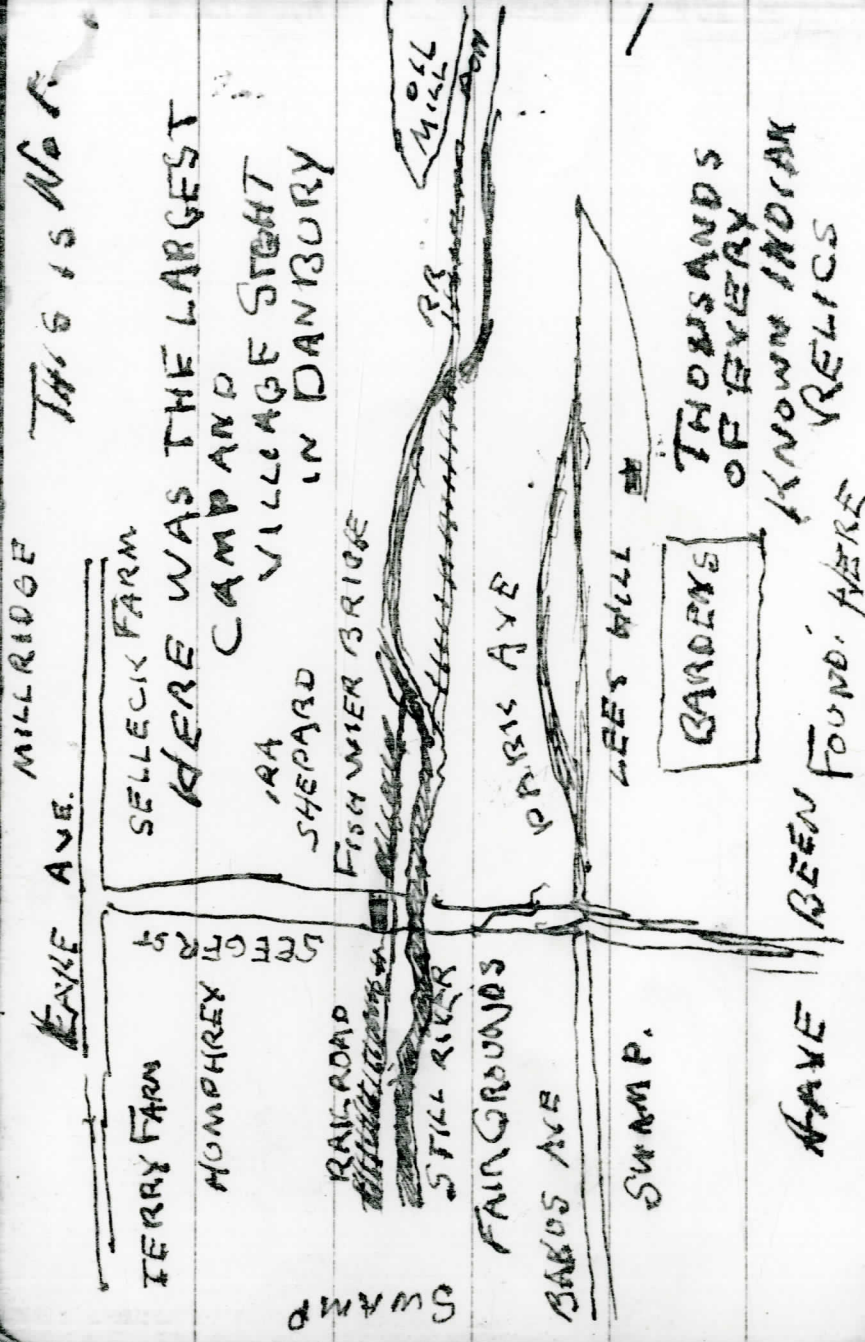 MILLRIDGE
THIS IS No 1
LAKE AVE.
SELLECK FARM
HERE WAS THE LARGEST
CAMP AND
VILLAGE SIGHT
IN DANBURY
TERRY FARM
HOMPHREY
SEEGER ST
IRA
SHEPARD
FISH WIER BRIDGE
RAILROAD
STILL RIVER
RR
OLL
MILL
SWAMP
FAIR GROUNDS
PARK AVE
BAKUS AVE
SWAMP.
LEES HILL
BARDENS
THOUSANDS
OF EVERY
KNOWN INDIAN
RELICS
HAVE BEEN FOUND HERE